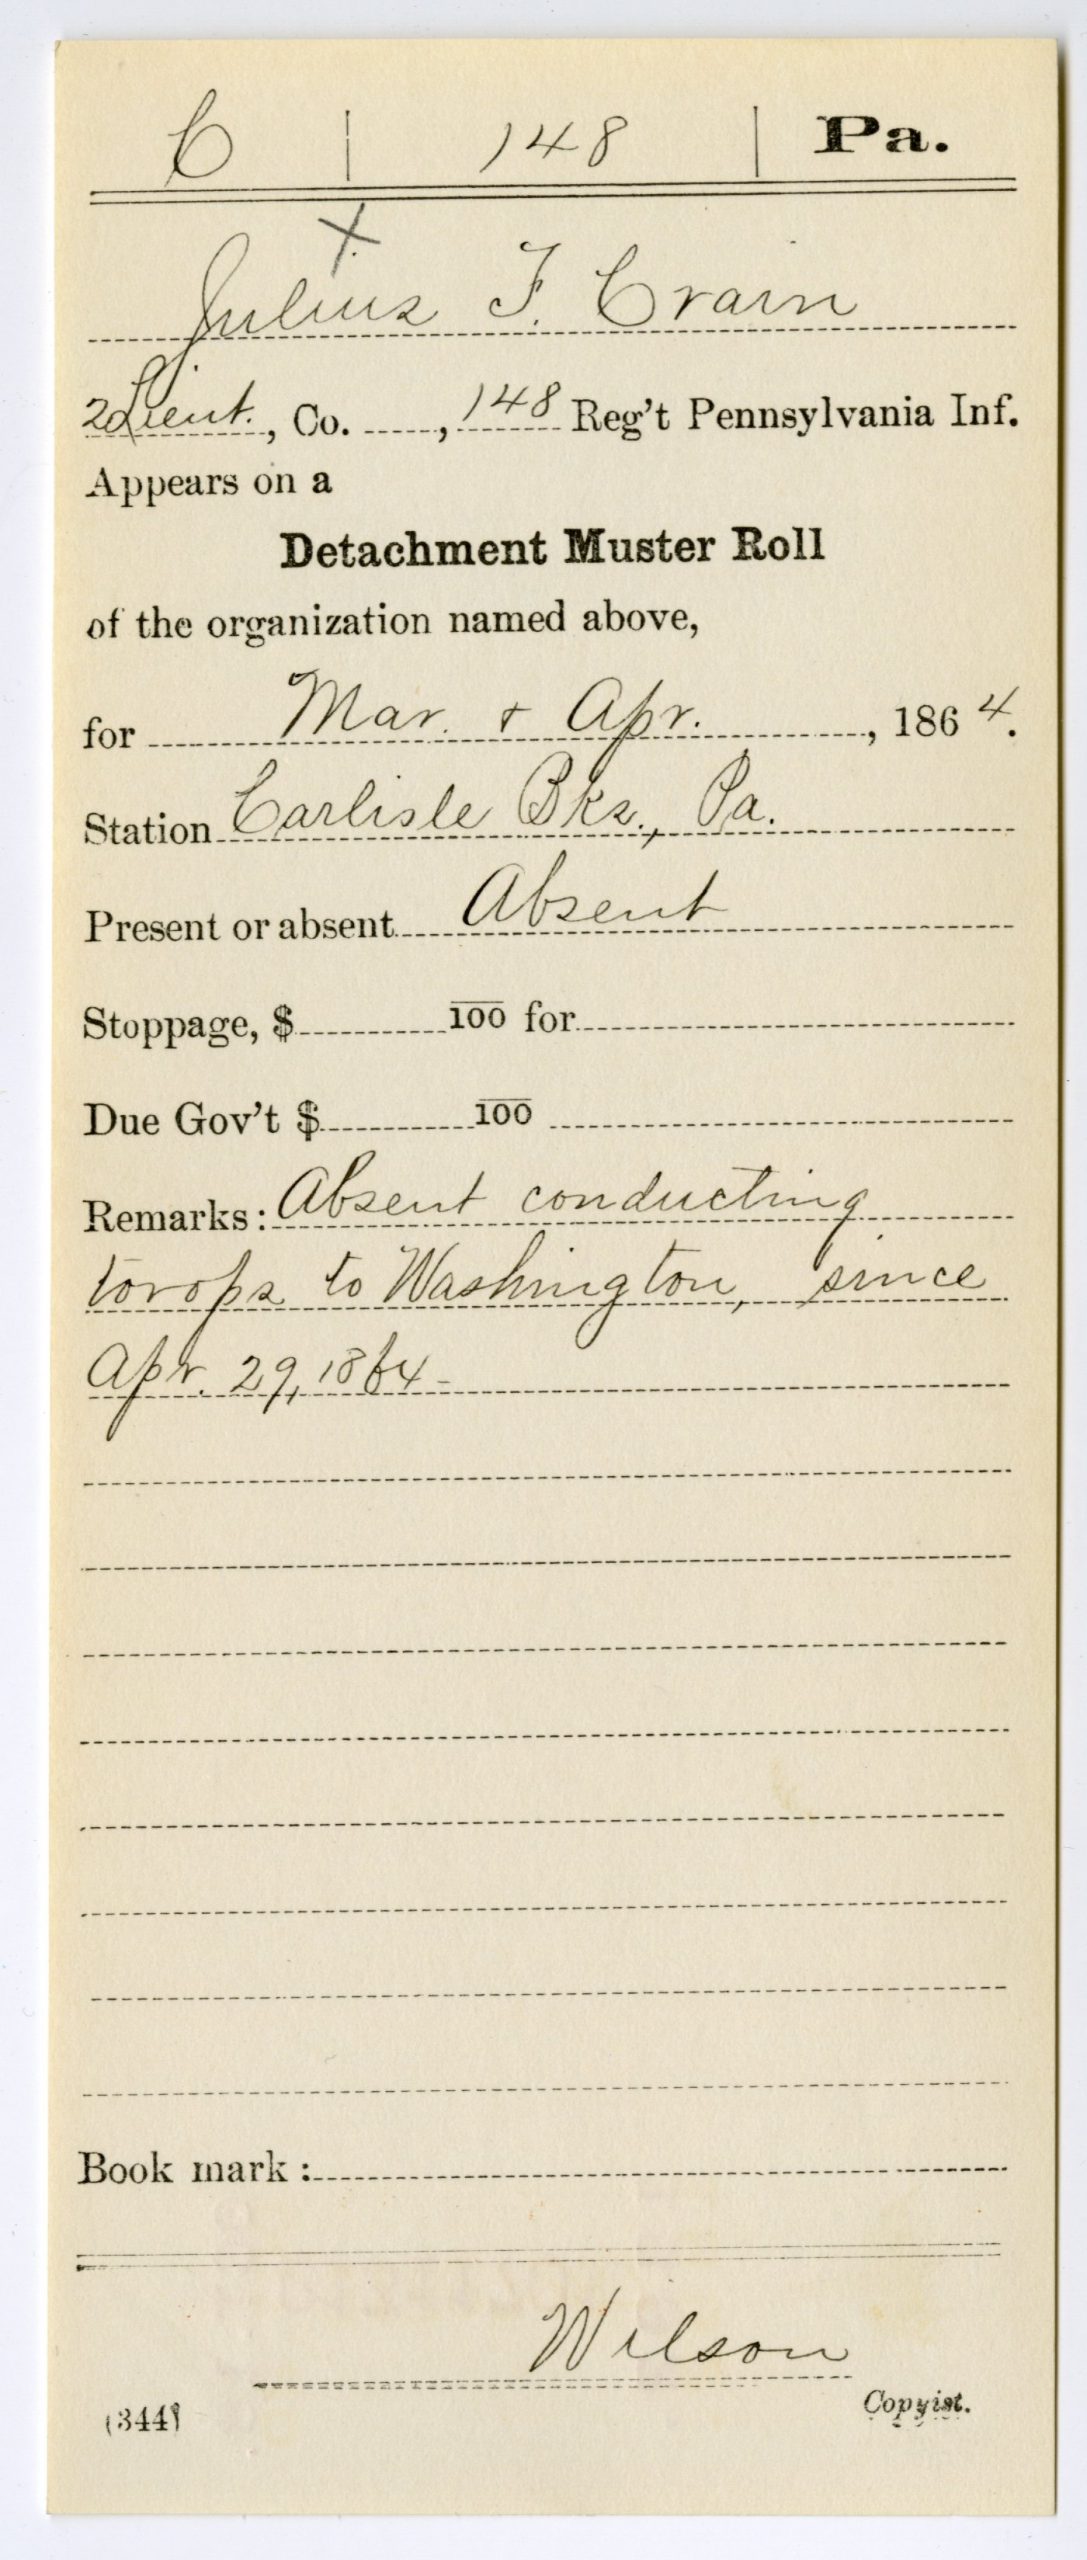 C | 148 | Pa.
X
Julius F. Crain
2 Lieut., Co. , 148 Reg't Pennsylvania Inf.
Appears on a
Detachment Muster Roll
of the organization named above,
for Mar. & Apr. , 1864.
Station Carlisle Bks., Pa.
Present or absent Absent
Stoppage, $ 100 for
Due Gov't $ 100
Remarks: Absent conducting
troops to Washington, since
Apr. 29, 1864-
Book mark:
Wilson
(344)
Copyist.